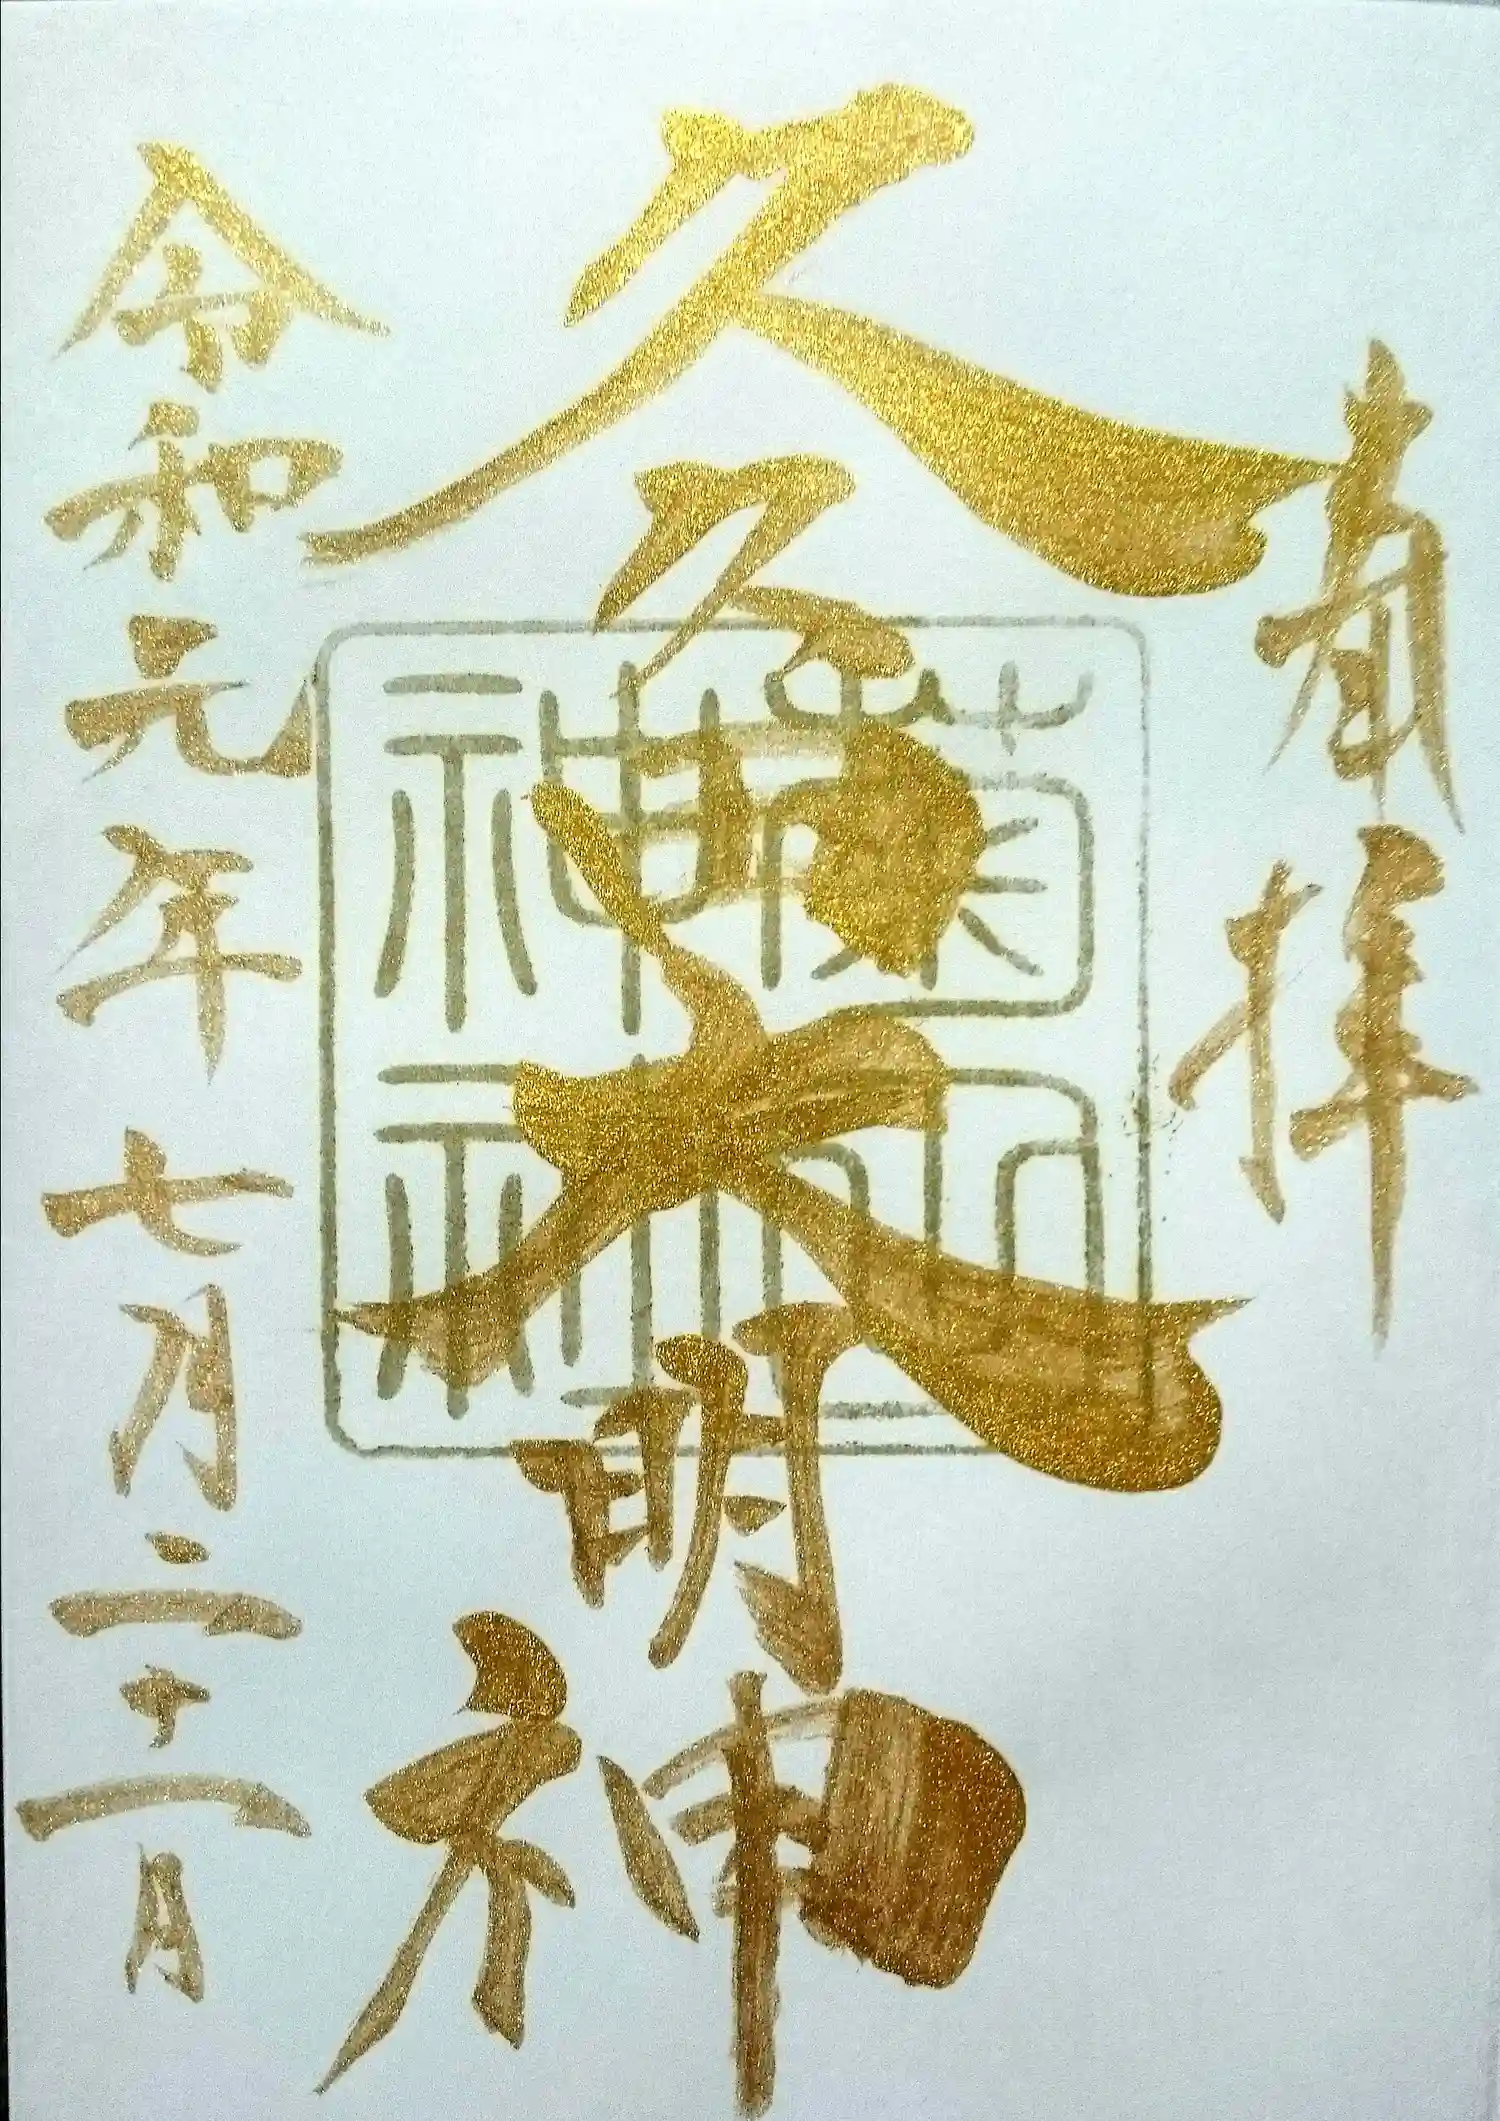 奉拝
久々田大明神
令和元年七月二十一日